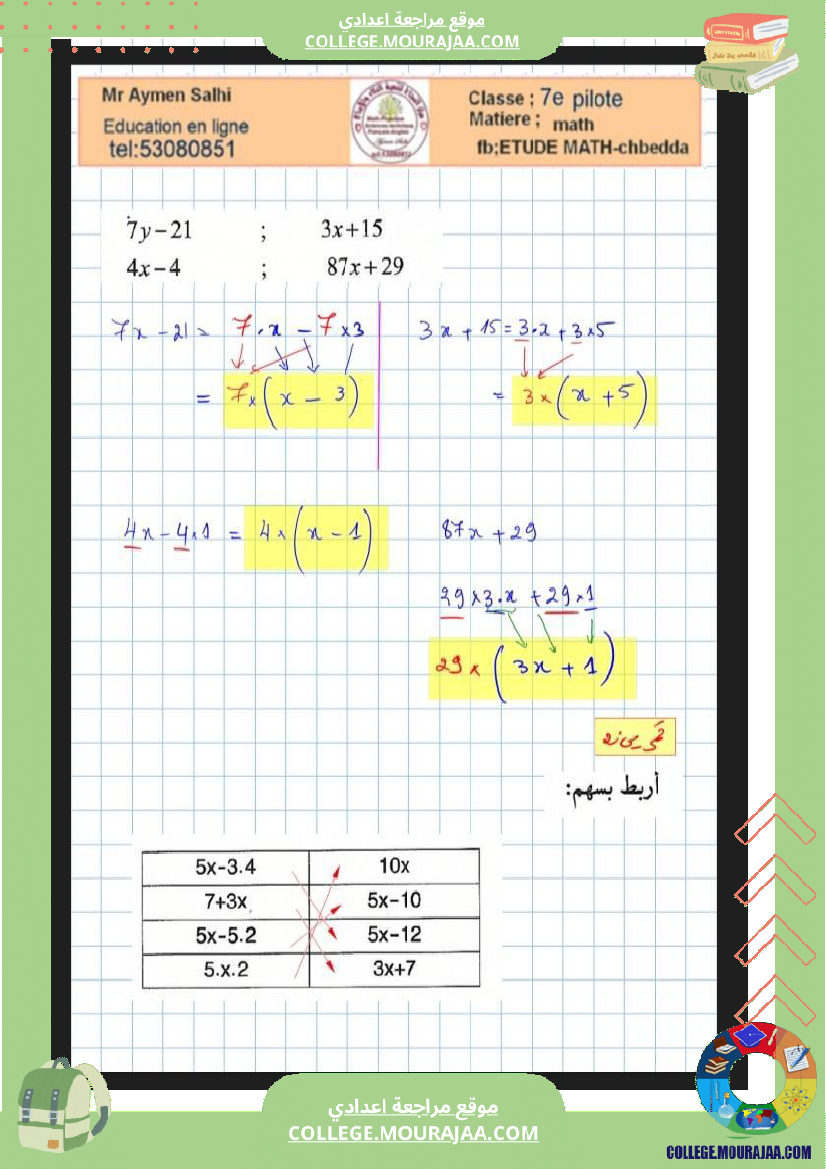 موقع مراجعة اعدادي
COLLEGE.MOURAJAA.COM
Mr Aymen Salhi
Education en ligne
tel:53080851
Classe ; 7e pilote
Matiere ; math
fb;ETUDE MATH-chbedda
7y-21 ; 3x+15
4x-4 ; 87x+29
7x - 21 = 7·x - 7×3
= 7×(x - 3)
3x + 15 = 3·x + 3×5
= 3×(x + 5)
4x - 4×1 = 4×(x - 1)
87x + 29
29×3·x + 29×1
29×(3x + 1)
أربط بسهم:
5x-3.4 10x
7+3x 5x-10
5x-5.2 5x-12
5.x.2 3x+7
موقع مراجعة اعدادي
COLLEGE.MOURAJAA.COM
COLLEGE.MOURAJAA.COM